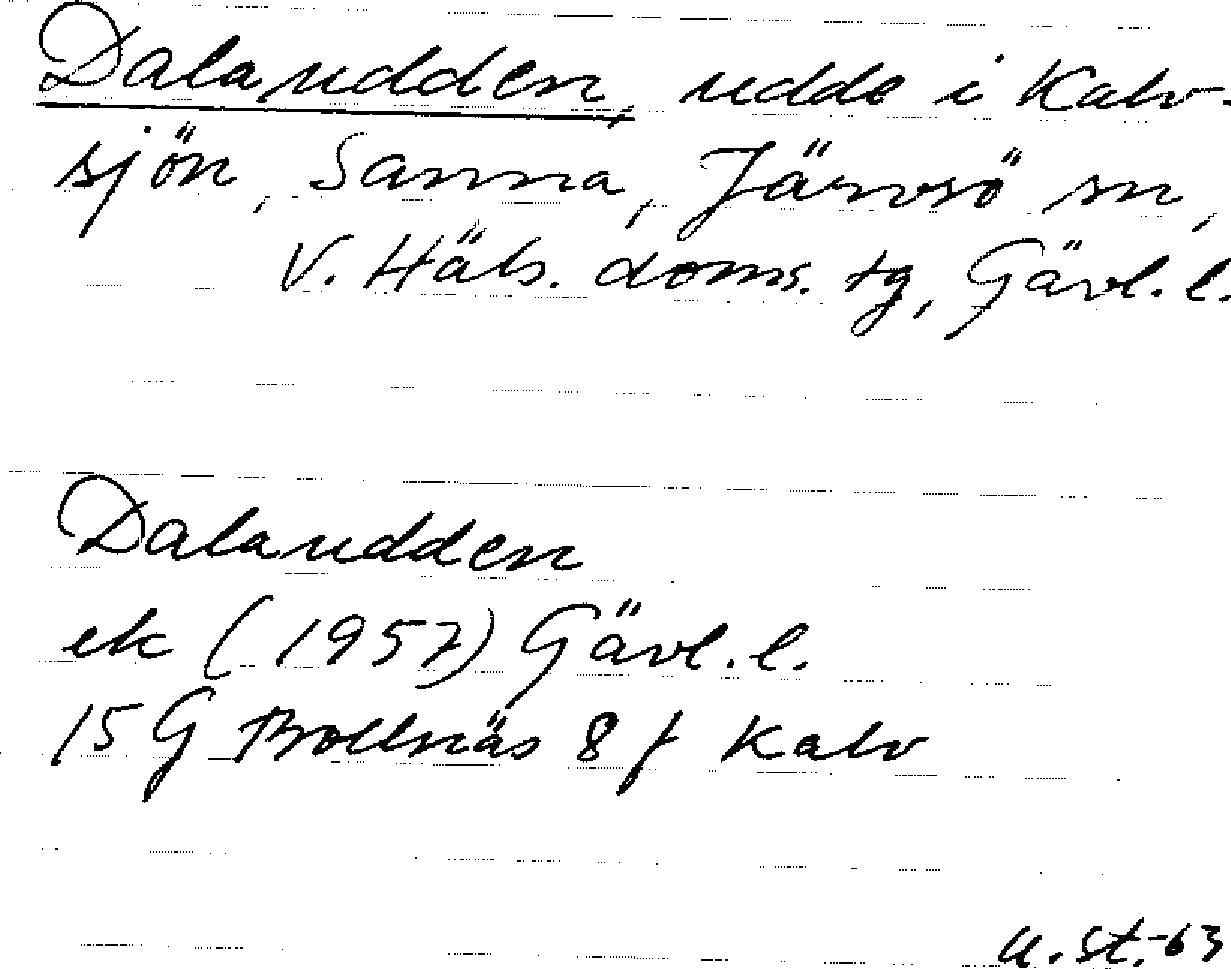 Dalaudden, udde i Kalv-
sjön, Sanna, Järvsö sn,
V. Häls. doms. tg, Gävl. l.
Dalaudden
ek (1957) Gävl. l.
15 G Bollnäs 8 f Kalv
U. St. -63